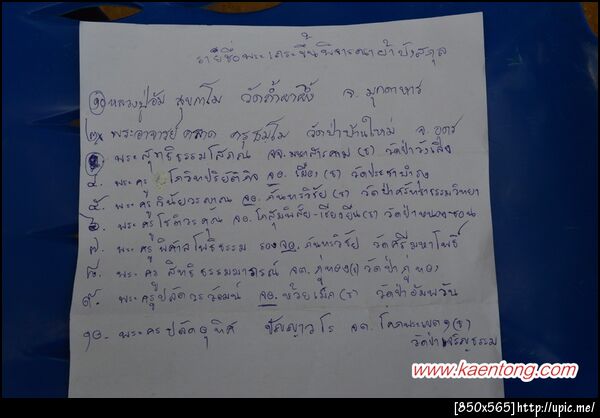 รายชื่อพระเถระขึ้นพิจารณาผ้าบังสุกุล
๑. หลวงปู่อ้ม สุขกาโม วัดถ้ำผาผึ้ง จ. มุกดาหาร
๒. พระอาจารย์ฉลาด วัดป่าบ้านใหม่ จ. อุดร
๓. พระสุทธิธรรมโสภณ จจ. มหาสารคาม (ธ) วัดป่าวังเลิง
๔. พระครูโกวิทปริยัติกิจ จอ. เมือง (ธ) วัดประชาบำรุง
๕. พระครูวินัยวรญาณ จอ. กันทรวิชัย (ธ) วัดป่าศรัทธาธรรมวิทยา
๖. พระครูโชติวรคุณ จอ. โกสุมพิสัย-เชียงยืน (ธ) วัดป่าหนองซอน
๗. พระครูพิศาลโพธิธรรม รองจอ. กันทรวิชัย วัดศรีมหาโพธิ์
๘. พระครูสิทธิธรรมาภรณ์ จต. กู่ทอง (ธ) วัดป่ากู่ทอง
๙. พระครูปลัดวรวัฒน์ จอ. ห้วยเม็ก (ธ) วัดป่าอัมพวัน
๑๐. พระครูปลัดอุทิศ ปัญญาวโร จต. เขต ๑ (ธ)
วัดป่าเจริญธรรม
www.kaentong.com
[850x565]http://upic.me/